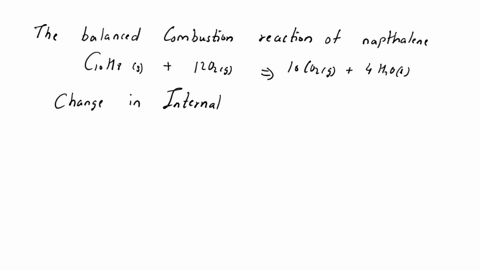 The balanced Combustion reaction of napthalene
C10H8 (s) + 12O2(g) ⇒ 10CO2(g) + 4H2O(l)
Change in Internal